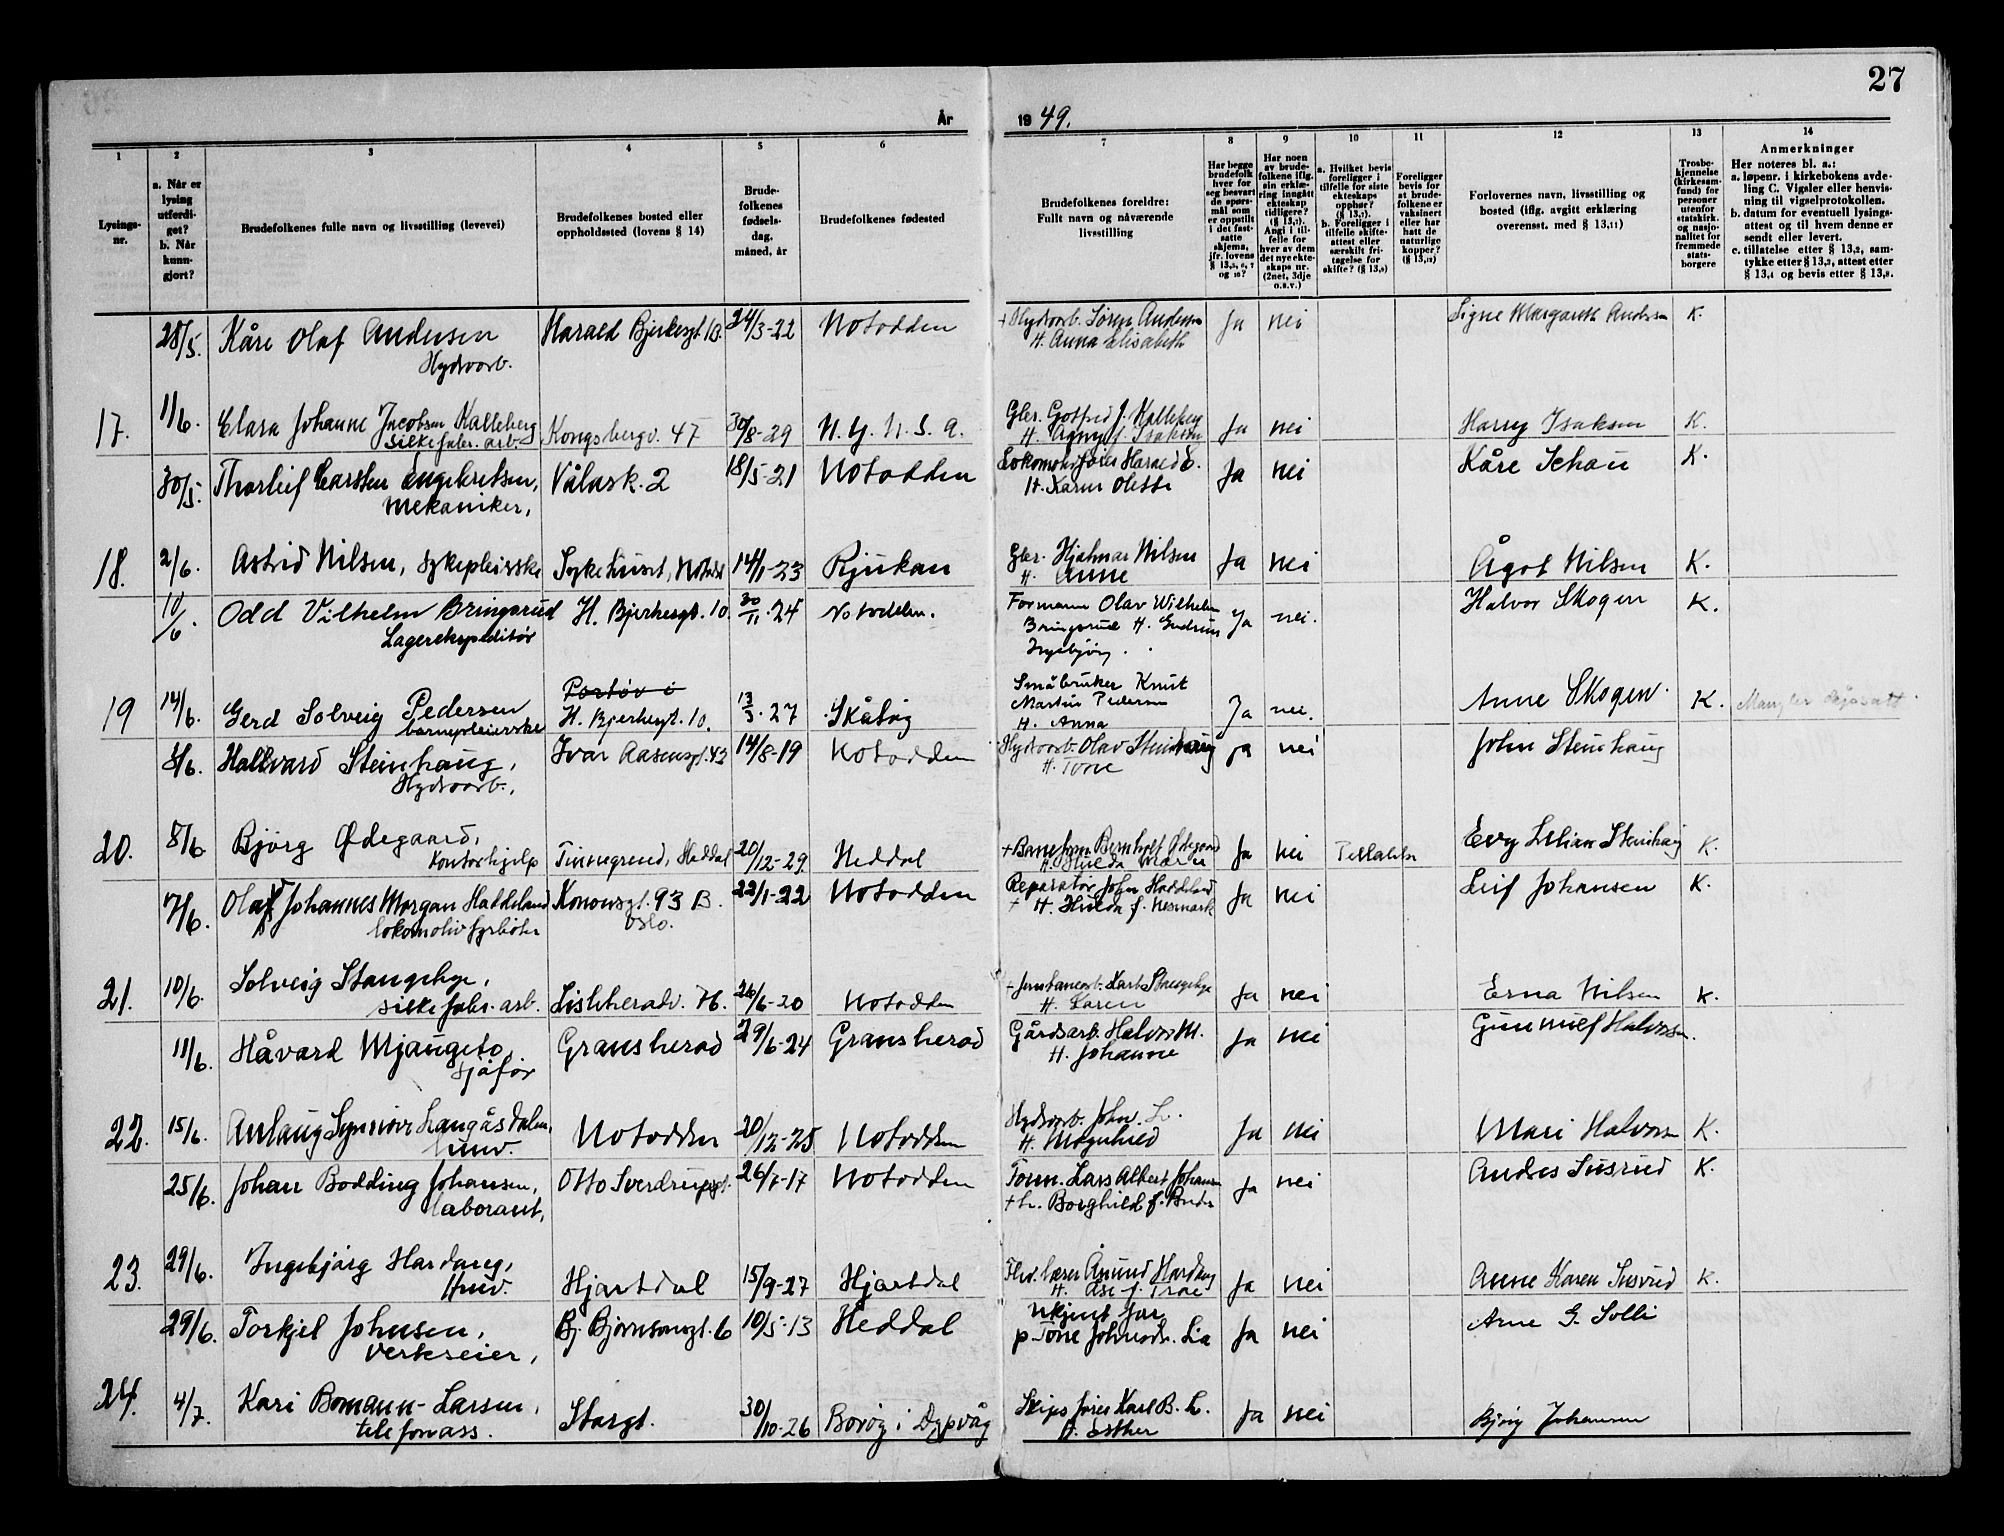 27
År
19 49.
1
2
3
4
5
6
7
8
9
10
11
12
13
14
Lysings-
nr.
a. Når er
lysing
utferdi-
get?
b. Når
kunn-
gjort?
Brudefolkenes fulle navn og livsstilling (levevei)
Brudefolkenes bosted eller
oppholdssted (lovens § 14)
Brude-
folkenes
fødsels-
dag,
måned, år
Brudefolkenes fødested
Brudefolkenes foreldre:
Fullt navn og nåværende
livsstilling
Har begge
brudefolk
hver for
seg besvart
de spørs-
mål som
er oppstilt
i det fast-
satte
skjema,
jfr. lovens
Har noen
av brude-
folkene iflg.
sin erklæ-
ring inngått
ekteskap
tidligere?
Angi i til-
felle for
hver av dem
det nye ekte-
skaps nr.
(2net, 3dje
o.s.v.)
a. Hvilket bevis
foreligger i
tilfelle for siste
ekteskaps
opphør?
b. Foreligger i
tilfelle skifte-
attest eller
særskilt fri-
tagelse for
skifte?
Foreligger
bevis for
at brude-
folkene er
vaksinert
eller har
hatt de
naturlige
kopper?
Forlovernes navn, livsstilling og
bosted (iflg. avgitt erklæring
overensst. med § 13,11)
Trosbe-
kjennelse
(kirkesam-
fund) for
personer
utenfor
statskirk.
og nasjo-
nalitet for
fremmede
stats-
borgere
Anmerkninger
Her noteres bl. a.:
a. løpenr. i kirkebokens avde-
ling C. Vigsler eller henvis-
ning til vigselprotokollen.
b. datum for eventuell lysings-
attest og til hvem denne er
sendt eller levert.
c. tillatelse etter § 13,2, sam-
tykke etter § 13,3, attest etter
§ 13,4 og bevis etter § 13,8.
28/5. Kåre Olaf Andersen Harald Bjerkesgt. 1B. 24/3-22 Notodden + Hydroarb. Søren Andersen Ja nei Signe Margareth Andersen K.
Hydroarb. H. Anna Elisabeth
17. 1/6. Clara Johanne Jacobsen Kalleberg Kongsbergv. 47 30/8-29 N.Y. U.S.A. Gbr. Gotfred J. Kalleberg Ja nei Harry Isaksen K.
silkefabr. arb. H. Agny f. Isaksen
30/5. Thorleif Carsten Engebretsen, Vålask. 2 18/5-21 Notodden Lokomotivfører Harald E. Ja nei Kåre Schau K.
mekaniker, H. Karen Olette
18. 2/6. Astrid Nilsen, sykepleierske Sykehuset, Notodd 14/1-23 Rjukan Gbr. Hjalmar Nilsen Ja nei Ågot Nilsen K.
H. Anne
10/6. Odd Vilhelm Bringsrud H. Bjerkesgt. 10. 30/11.24 Notodden. Formann Olav Wilhelm Ja nei. Halvor Skogen K.
Lagerekspeditør Bringsrud H. Gudrun
Ingebjørg.
19 14/6. Gerd Solveig Pedersen H. Bjerkesgt. 10. 13/3.27 Skåtøy Småbruker Knut Ja nei. Anne Skogen. K. Mangler
barnepleierske Martin Pedersen
H. Anna
8/6. Hallvard Steinhaug, Ivar Aasensgt. 43 14/8-19 Notodden Hydroarb. Olav Steinhaug ja nei John Steinhaug
Hydroarb. H. Tone
20. 8/6 Bjørg Ødegaard, Tinnegrend, Heddal 20/12-29. Heddal + Baneform. Bernholt Ødegaard Ja nei Evy Lilian Steinhaug K.
Kontorhjelp H. Hulda Maren
7/6. Olaf Johannes Morgan Haddeland Konowsgt. 93 B. 22/1-22 Notodden Reparatør John Haddeland Ja nei Leif Johansen K.
lokomotivfyrbøter Oslo. + H. Hilda f. Nesmark
21. 10/6. Solveig Stangebye, Lislheradv. H. 26/6-20 Notodden Ja nei Erna Nilsen K.
silkefabr. arb. H. Karen
11/6. Håvard Mjaugeto Gransherad 29/6-24 Gransherad Gårdsarb. Halvor M. Ja nei Gunnulf Halvorsen.
sjåfør H. Johanne
22. 15/6. Anlaug Synnøve Langåsdalen, Notodden 20/12-25 Notodden Hydroarb. John. L. Ja nei Mari Halvorsen K.
husv. H. Magnhild
25/6. Johan Bødding Johansen, Otto Sverdrupsgt. 26/7-17 Notodden Tomm. Lars Albert Johansen Ja nei Andres Susrud K.
laborant, + h. Borghild f.
23. 29/6. Ingebjørg Hardang, Hjartdal 15/9-27 Hjartdal Hardang Ja nei Anne Karen Susrud K.
Husv. H. Åse f.
29/6. Torkjel Johnsen, Bj. Bjørnsonsgt. 6 10/5-13 Heddal Ukjent far Ja nei Arne G. Solli
Verkseier, p. Tone Johnsdtr. Lia
24. 4/7. Kari Bomann-Larsen, Storgt. 30/10-26 Borøy i Dypvåg Skipsfører Karl B. L. Ja nei Bjørg Johansen
telefonass. H. Esther